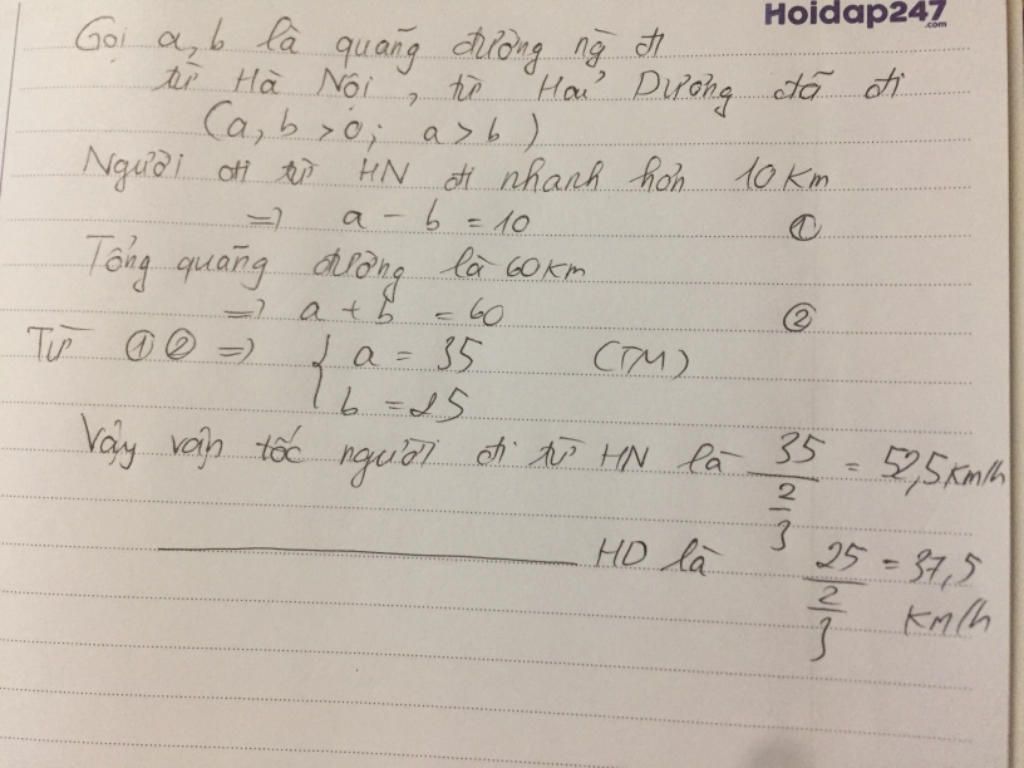 Hoidap247
.com
Gọi a, b là quãng đường ng đi
từ Hà Nội, từ Hải Dương đã đi
(a, b > 0; a > b)
Người đi từ HN đi nhanh hơn 10 Km
=> a - b = 10 ①
Tổng quãng đường là 60 Km
=> a + b = 60 ②
Từ ① ② => { a = 35 (TM)
b = 25
Vậy vận tốc người đi từ HN là 35/(2/3) = 52,5 Km/h
———————— HD là 25/(2/3) = 37,5
Km/h